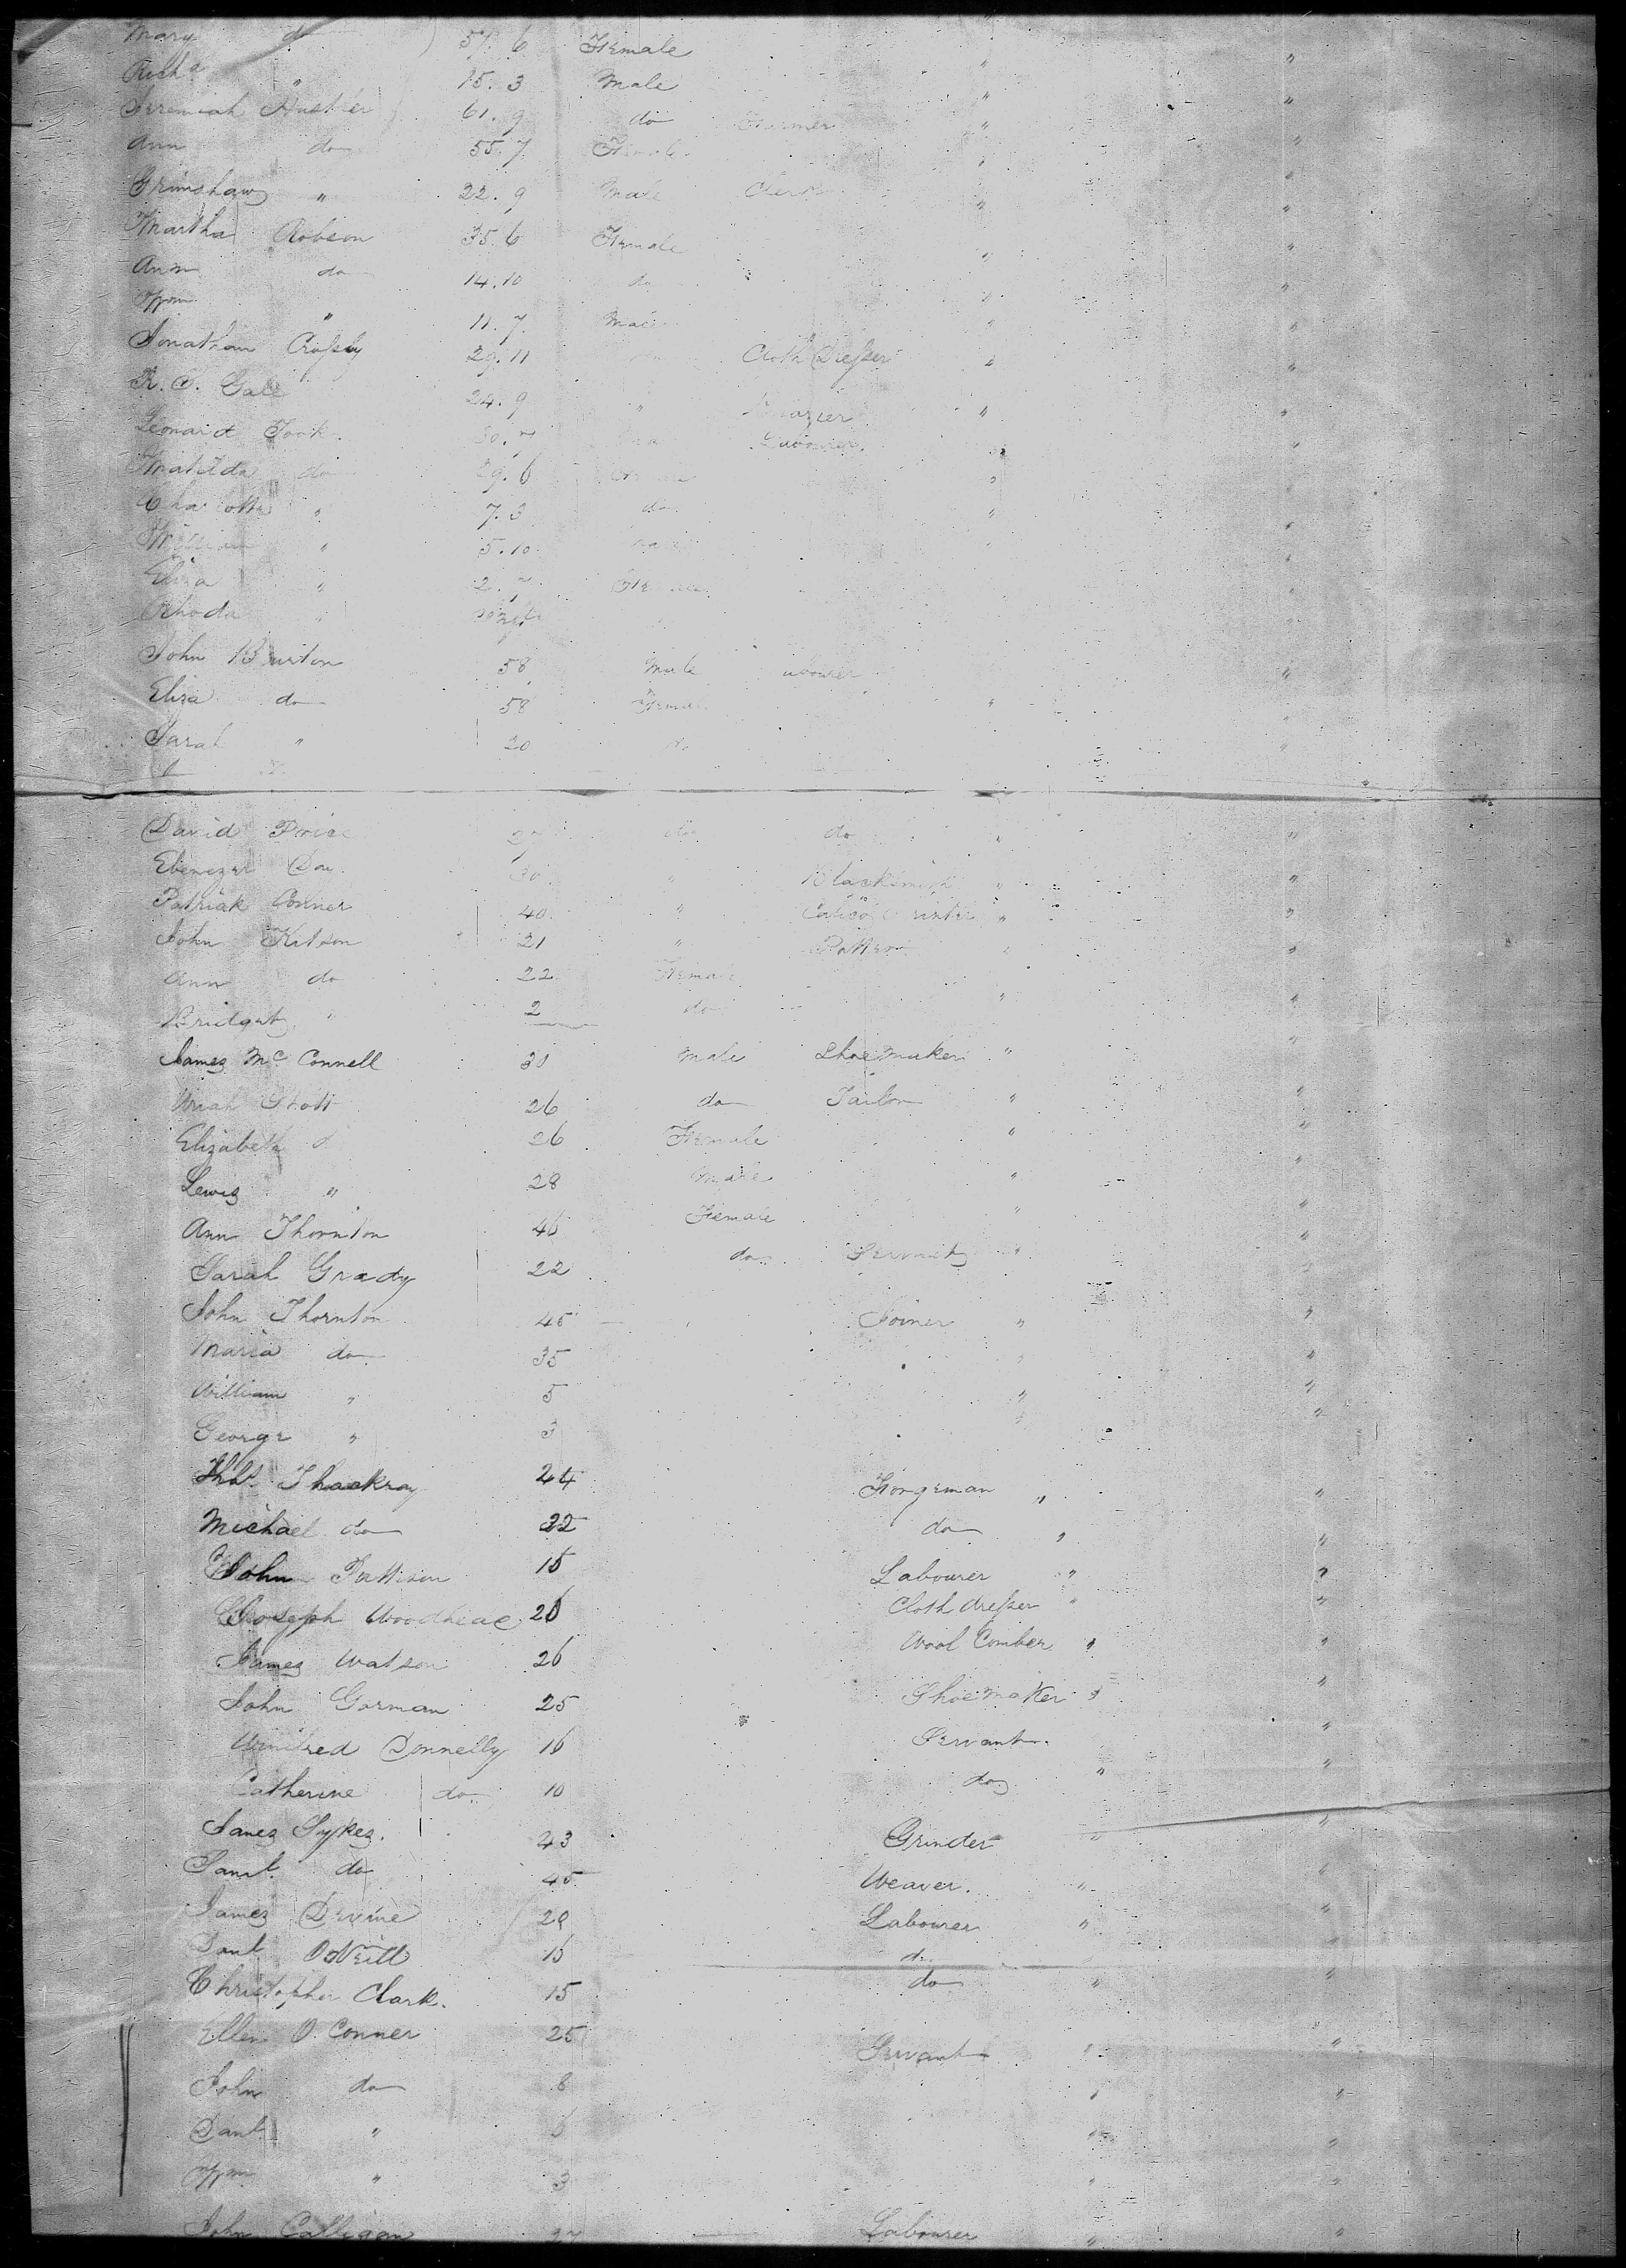 Mary do 51. 6 Female " "
Richd " 15. 3 Male " "
Jeremiah Hustler 61. 9 do Farmer " "
Ann do 55. 7 Female " "
Grimshaw " 22. 9 Male Clerk " "
Martha Robson 35. 6 Female " "
Ann do 14. 10 do " "
Wm " 11. 7. Male " "
Jonathan Crossby 29. 11 Cloth Dresser " "
Gale 24. 9 " "
Leonard 30. 7 Labourer "
Matilda do 29. 6 "
Charlotte " 7. 3 do "
William " 5. 10 "
Eliza " 2. 7 Female
Rhoda "
John Burton 58 Male Labourer "
Eliza do 58 Female "
Sarah " 20 do "
David Price 27 do do " "
Ebenezer 30 " Blacksmith " "
Patriak Conner 40 " Calico Printer " "
John Kitson 21 " Potter " "
Ann do 22 Female
Bridget " 2 do " "
James McConnell 30 Male Shoe Maker " "
Uriah 26 do Tailor " "
Elizabeth d 26 Female " "
Lewis " 28 Male " "
Ann Thornton 46 Female " "
Sarah Grady 22 do Servant " "
John Thornton 45 Joiner " "
Maria do 35 " "
William " 5 " "
George " 3 " "
Thos. Thackray 24 Forgeman " "
Michael do 22 do " "
John Pattison 15 Labourer " "
Joseph Woodhead 26 Cloth dresser " "
James Watson 26 Wool Comber " "
John Gorman 25 Shoe Maker " "
Winifred Donnelly 16 Servant "
Catherine do 10 do " "
James Sykes. 43 Grinder " "
Saml. do 45 Weaver. " "
James Devine 20 Labourer " "
Danl O'Neill 16 do
Christopher Clark. 15 do " "
Ellen O. Conner 25 Servant " "
John do 8 " "
Danl. " 6 " "
Wm " 3 " "
John Calligan 27 Labourer " "